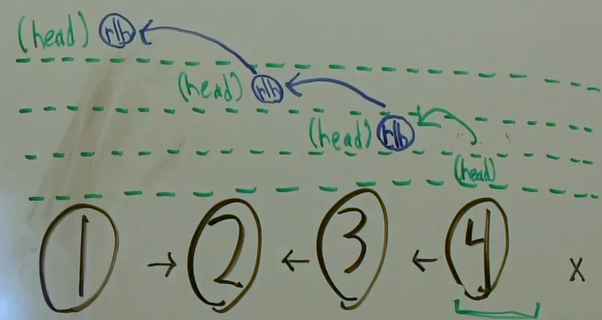 (head) rlh
(head) rlh
(head) rlh
(head)
1 → 2 ← 3 ← 4 x